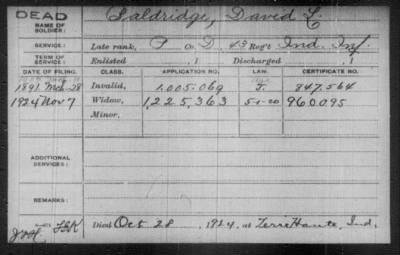 DEAD
NAME OF SOLDIER: Saldridge, David L
SERVICE: Late rank, P Co. D, 43 Reg't Ind. Inf.
TERM OF SERVICE: Enlisted , 1 Discharged , 1
DATE OF FILING. CLASS. APPLICATION NO. LAW. CERTIFICATE NO.
1891 Mch 28 Invalid, 1.005.069 J. 847.564
1924 Nov 7 Widow, 1,225,363 5-1-20 960095
Minor,
ADDITIONAL SERVICES:
REMARKS:
Died Oct 28, 1924, at Terre Haute, Ind.